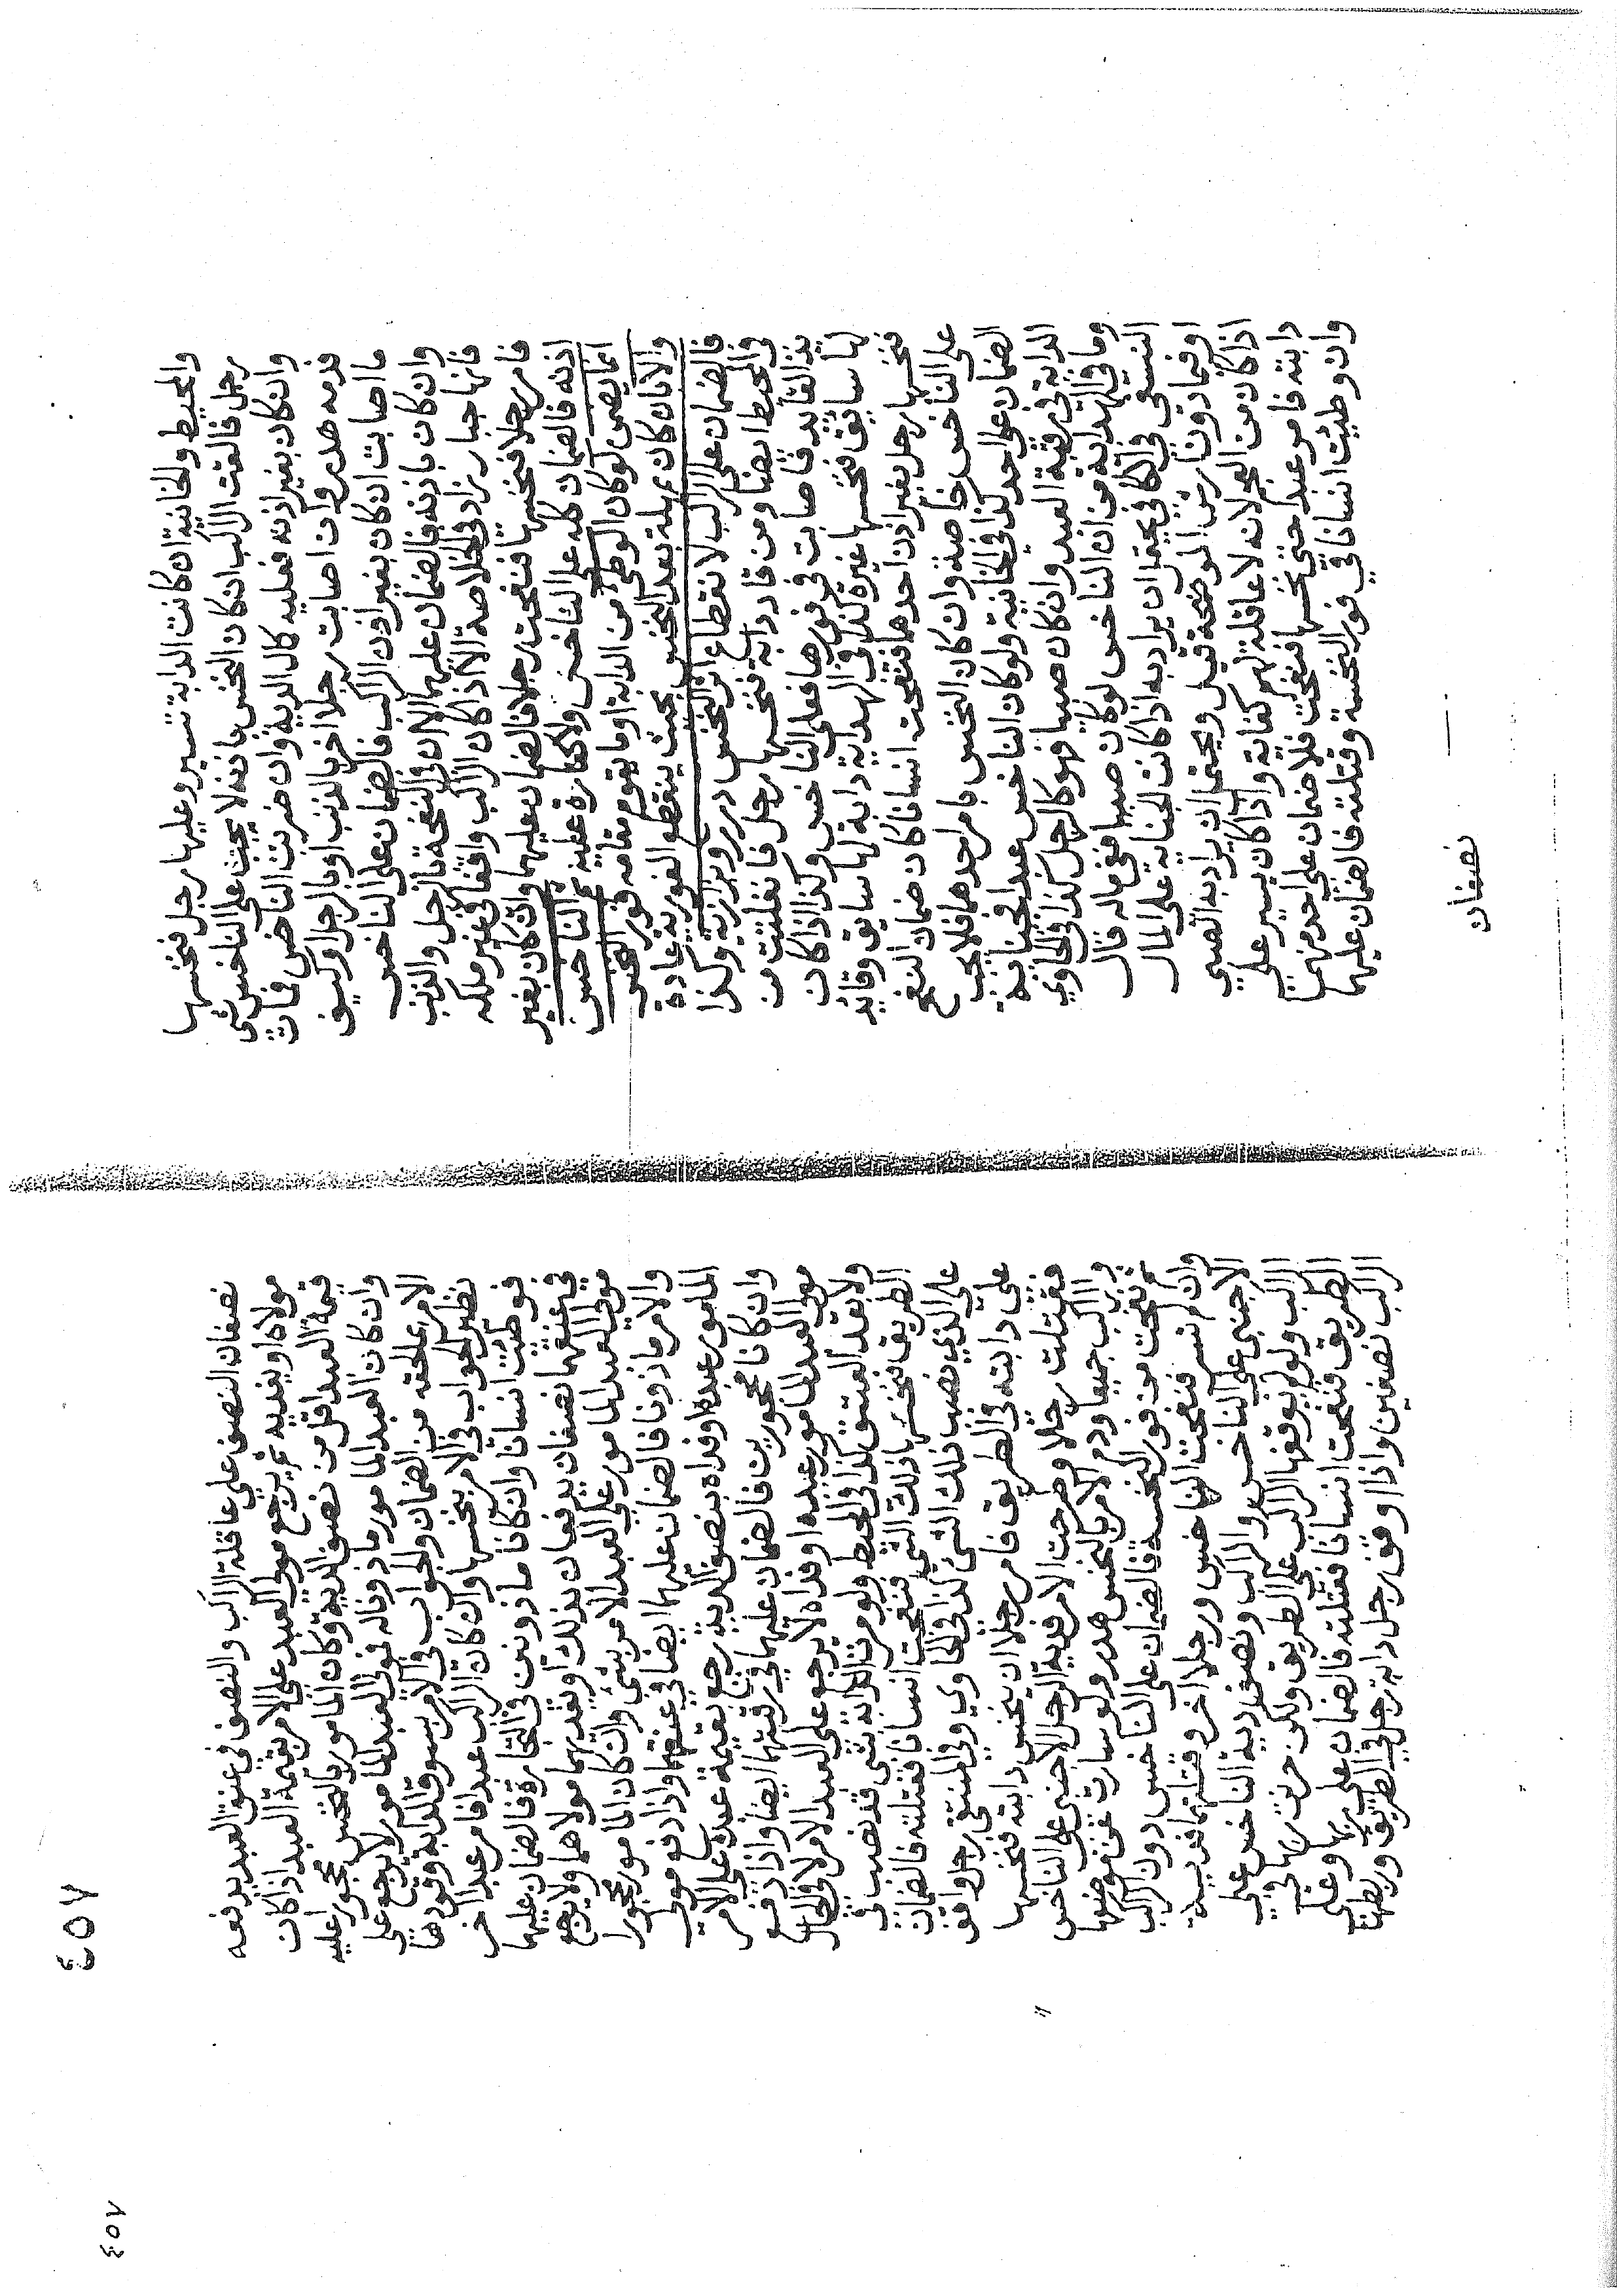 والمحيط والخانية ان كانت الدابة تسير وعليها رجل فنخسها
رجل فالقت الراكب ان كان النخس باذنه لا يجب على الناخس شي
وان كان بغير اذنه فعليه كمال الدية وان ضربت الناخس فمات
فدمه هدر وان اصابت رجلا اخر بالذنب او بالرجل او كيف
ما اصابت ان كان بغير اذن الراكب فالضمان على الناخس
وان كان باذنه فالضمان عليهما الا في النفحة بالرجل والذنب
فانها جبار زاد في الخلاصة الا اذا كان الراكب واقفا في غير ملكه
فامر رجلا فنخسها فنفحت رجلا فالضمان عليهما وان كان بغير
اذنه فالضمان كله على الناخس ولا كفارة عليه ثم الناخس
انما يضمن لو كان الوطئ من الدابة او ما يقوم مقامه فور النخس
والا بان كان بمهلة بعد النخس بحيث ينقطع الفورية عادة
فالضمان على الراكب لانقطاع اثر النخس درر وبزازية وكذا
في المحيط ايضا ومن قاد دابة فنخسها رجل فانفلتت من
يد القايد فاصابت في فورها فعلى الناخس وكذا اذا كان
لها سايق فنخسها غيره كذا في الهداية دابة لها سايق وقايد
فنخسها رجل بغير اذن احدهما فنفحت انسانا كان ضمان النفح
على الناخس خاصة وان كان النخس بامر احدهما فلا يجب
الضمان على احد كذا في الخانية ولو كان الناخس عبدا فجناية
الدابة في رقبة العبد وان كان صبيا فهو كالرجل كذا في الحاوي
وما في الهداية من ان الناخس لو كان صبيا ففي ماله قال
النسفي في الكافي يحتمل ان يراد به اذا كانت الجناية على المال
او فيما دون ارش الموضحة قيل ويحتمل ان يراد به الصبي
اذا كان من العجم لانه لا عاقلة لهم كفاية واذا كان يسير على
دابته فامر عبدا حتى نخسها فنفحت فلا ضمان على احد منهما
وان وطئت انسانا في فور النخسة وقتلته فالضمان عليهما
نصفان
٤٥٧
نصفان النصف على عاقلة الراكب والنصف في عنق العبد يدفعه
مولاه او يفديه ثم يرجع مولى العبد على الامر بقيمة العبد اذا كان
قيمة العبد اقل من نصف الدية وكان المامور بالنخس محجورا عليه
وان كان العبد المامور ماذونا له فمولى العبد المامور لا يرجع على
الامر بما لحقه من الضمان والجواب في الامر بسوق الدابة وقودها
نظير الجواب في الامر بنخسها وان كان الراكب عبدا فامر عبدا اخر
فوطئت انسانا وان كانا ماذونين في التجارة فالضمان عليهما
في عنقهما نصفان يدفعان بذلك او يفديهما مولاهما ولا يرجع
مولى العبد المامور على العبد الامر بشئ وان كان المامور محجورا
والامر ماذونا فالضمان عليهما ايضا في عنقهما واذا دفع مولى
المامور عبده او فداه بنصف الدية رجع بقيمة عبده على الامر
وان كانا محجورين فالضمان عليهما في رقبتهما ايضا واذا دفع
مولى العبد المامور عبده او فداه لا يرجع على العبد الامر لا في الحال
ولا بعد العتق كذا في المحيط ولو مرت الدابة بشي قد نصب في
الطريق فنخسها ذلك الشي فنفحت انسانا فقتلته فالضمان
على الذي نصب ذلك الشئ كذا في الحاوي وفي المنتقى رجل واقف
على دابته في الطريق فامر رجلا ان ينخس دابته فنخسها
فقتلت رجلا وطرحت الامر فدية الرجل الاجنبي على الناخس
والراكب جميعا ودم الامر بالنخس هدر ولو سارت عن موضعها
ثم نفحت من فور النخسة فالضمان على الناخس دون الراكب
وان لم تسر فنفحت الناخس ورجلا اخر وقتلتهما فدية
الاجنبي على الناخس والراكب ونصف دية الناخس على
الراكب ولو لم يوقفها الراكب على الطريق ولكن حرنت بها في
الطريق فنفحت انسانا فقتلته فالضمان على ربها وعلى
الراكب نصفين واذا اوقف رجل دابة رجل في الطريق وربطها
٤٥٧